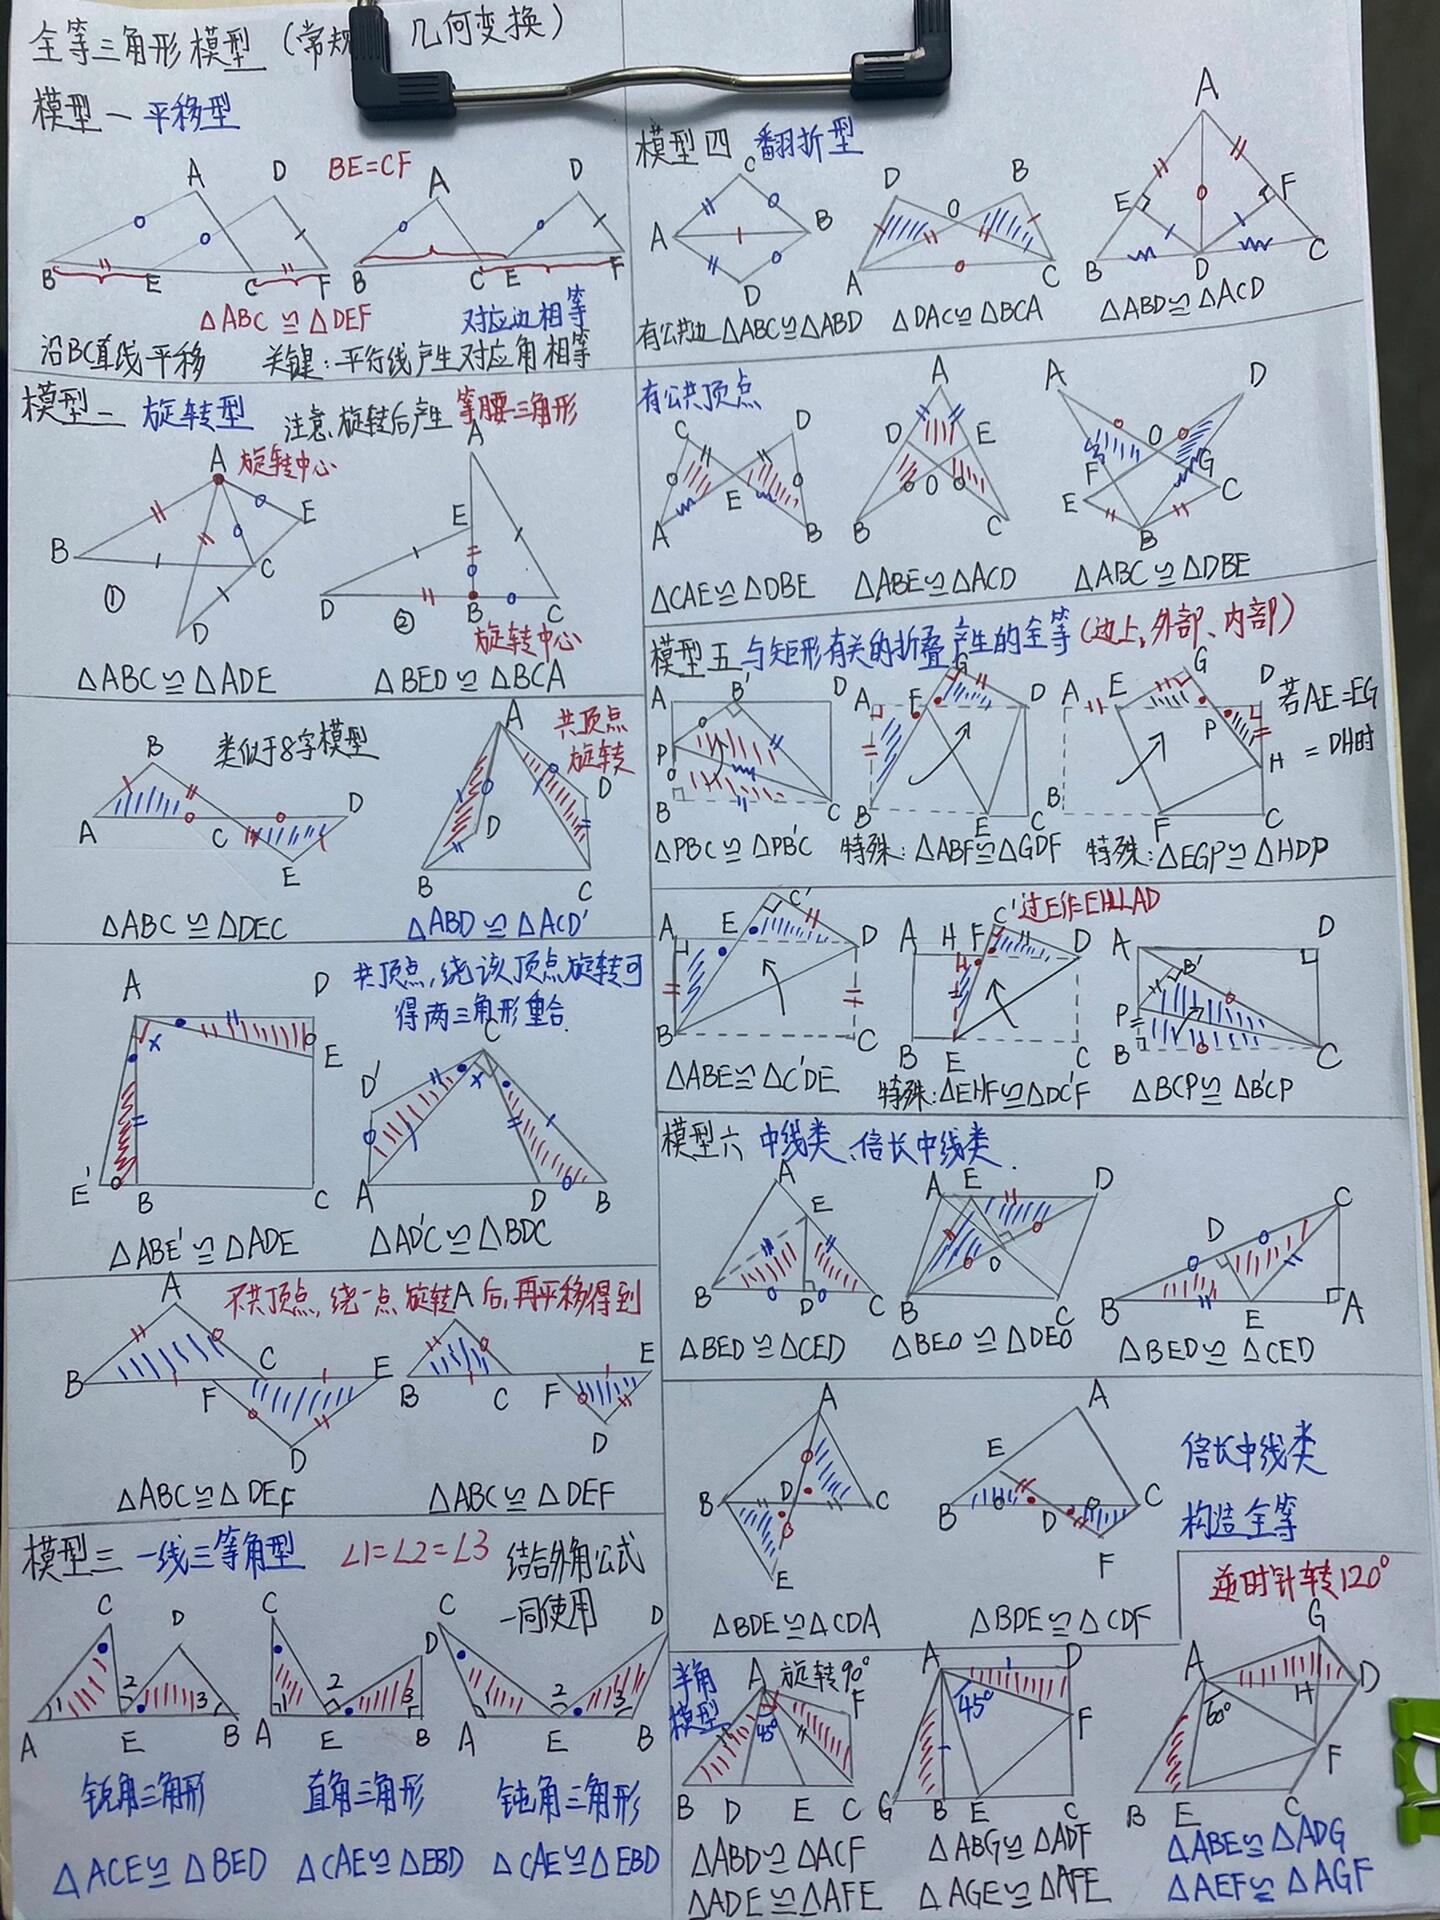 全等三角形模型（常规 几何变换）
模型一 平移型
BE=CF
A D A D
B E C F B C E F
△ABC≌△DEF 对应边相等
沿BC直线平移 关键：平行线产生对应角相等
模型二 旋转型 注意、旋转后产生等腰三角形
A 旋转中心 A
B E C D ①
E D B C ②
旋转中心
△ABC≌△ADE △BED≌△BCA
类似于8字模型 共顶点旋转
A B C D E
A B C D D
△ABC≌△DEC △ABD≌△ACD'
共顶点，绕该顶点旋转可
得两三角形重合
A D E x E' B C
D' C x A D B
△ABE'≌△ADE △AD'C≌△BDC
不共顶点，绕一点旋转后，再平移得到
A B C F E D
A B C F E D
△ABC≌△DEF △ABC≌△DEF
模型三 一线三等角型 ∠1=∠2=∠3 结合外角公式
一同使用
C D 1 2 3 A E B
C D 1 2 3 A E B
C D 1 2 3 A E B
锐角三角形 直角三角形 钝角三角形
△ACE≌△BED △CAE≌△EBD △CAE≌△EBD
模型四 翻折型
C A B D
D B O A C
A E F B D C
有公共边 △ABC≌△ABD △DAC≌△BCA △ABD≌△ACD
有公共顶点
C D E A B
A D E O B C
A D O F G E C B
△CAE≌△DBE △ABE≌△ACD △ABC≌△DBE
模型五 与矩形有关的折叠产生的全等（边上，外部、内部）
A B' D P B C
A F G D B E C
A E G D P H B F C
若AE=EG
=DH时
△PBC≌△PB'C 特殊：△ABF≌△GDF 特殊：△EGP≌△HDP
过E作EH⊥AD
A E C' D B C
A H F C' D B E C
A D B' P B C
△ABE≌△C'DE 特殊：△EHF≌△DC'F △BCP≌△B'CP
模型六 中线类、倍长中线类
A E B D C
A E D O B C
C D B E A
△BED≌△CED △BEO≌△DEO △BED≌△CED
A B D C E
A E B D C F
倍长中线类
构造全等
△BDE≌△CDA △BDE≌△CDF
逆时针转120°
半角
模型
旋转90°
A F 45° B D E C
A D 45° F G B E C
G A D H 60° F B E C
△ABD≌△ACF △ABG≌△ADF △ABE≌△ADG
△ADE≌△AFE △AGE≌△AFE △AEF≌△AGF